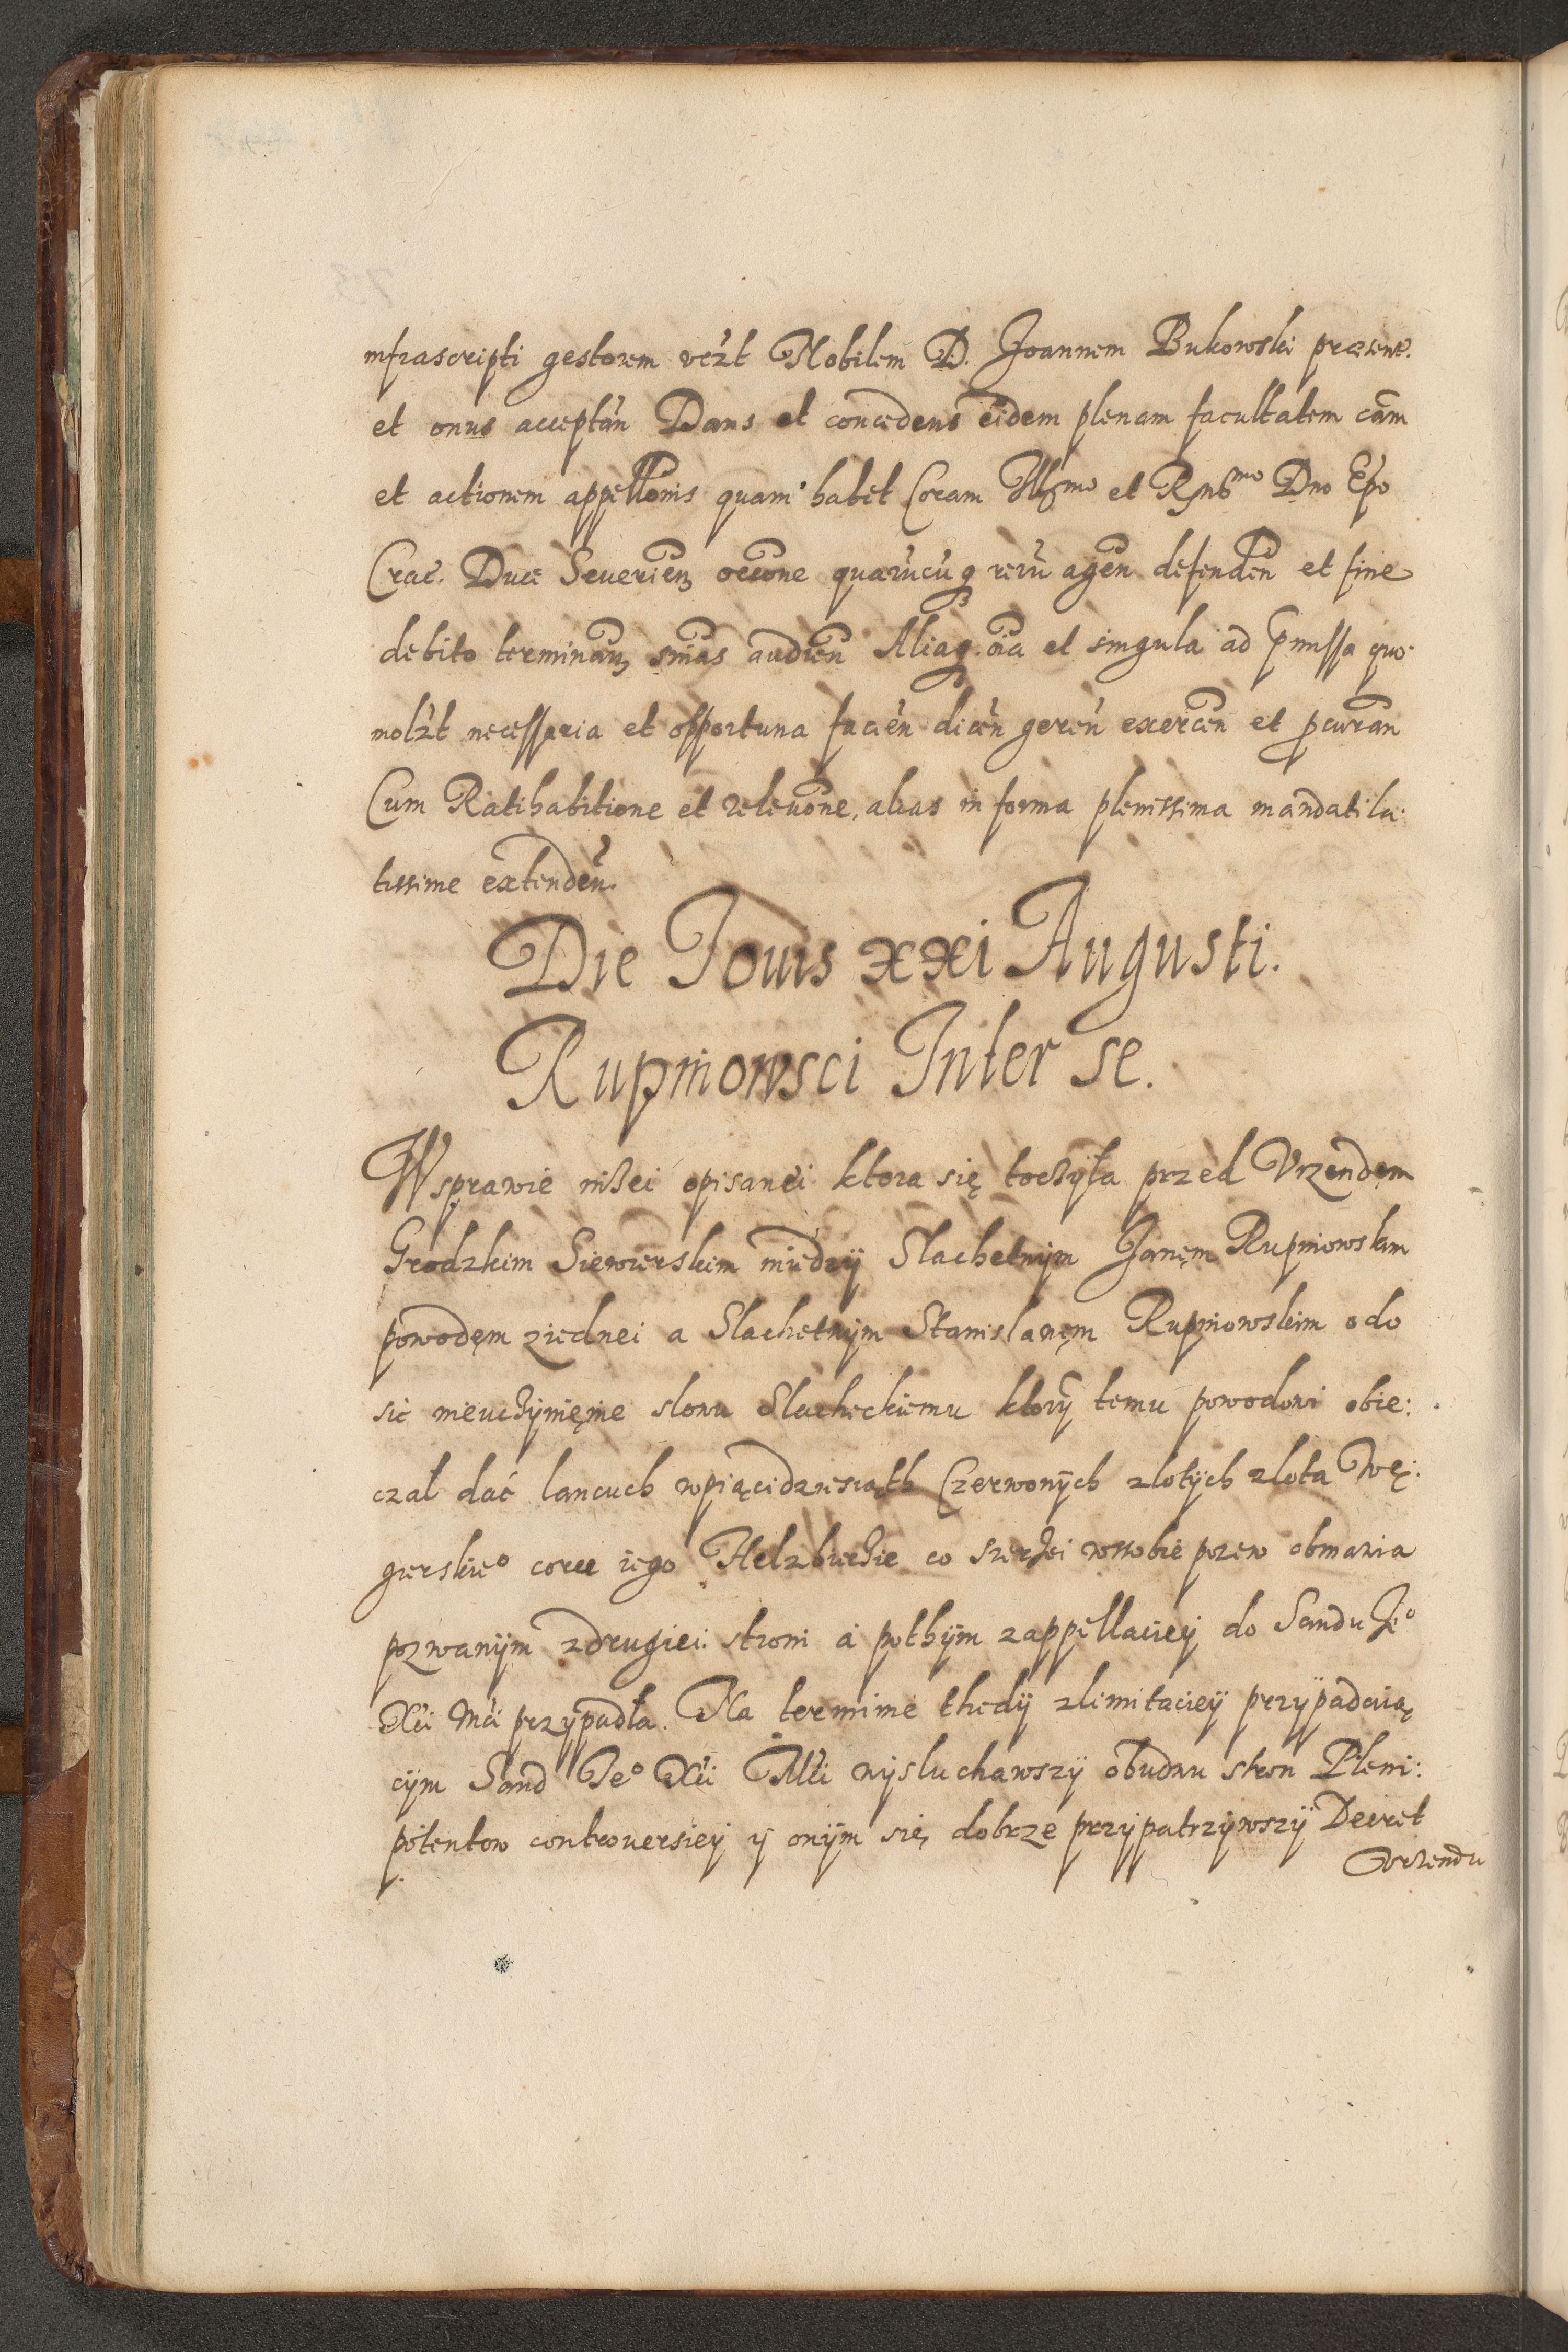 infrascripti gestorem vežt Nobilem D. Joannem Bukowski praesene.
et onus acceptan̄ Dans et concedens eidem plenam facultatem cām
et actionem appellōnis quam habet Coram Illsmo et Rndsmo Dno Epo
Crac. Duce Seuerien̄ occōne quarūcūq rerū agen̄ defenden̄ et fine
debito terminan̄ sn̄ias audien̄ Aliaq. oīa et singula ad p̄missa quo.
molžt necessaria et opportuna facien̄ dicen̄ geren̄ exercen̄ et pcuran̄
Cum Ratihabitione et releuōne, alias in forma plenissima mandati la:
tissime extenden̄.
Die Iouis xxi Augusti.
Rupniowsci Inter se.
W sprawie niżei opisanei ktora się toczyła przed Vrzendem
Grodzkim Siewierskim miedzÿ Slachetnÿm Janęm Rupniowskim
powodęm ziednei a Slachetnÿm Stanislawęm Rupniowskim odo
sic nieuczÿnięnie slowu Slacheckiemu ktorÿ temu powodowi obie:
czał dać lancuch wpiącidziesiąth Czerwonÿch zlotÿch zlota Wę:
gierskieo corce iego Helzbiecie co szerzei wsobie pozew obmawia
pozwanÿm zdrugiei stroni a pothÿm zappellaciey do Sandu Jeo
Xći Mći przÿpadła. Na terminie thedÿ zlimitacieÿ przÿpadaią
cÿm Sand Jeo Xći Mći wÿsluchawszÿ obudwu stron Pleni:
potentow controuersieÿ ÿ onÿm się dobrze przÿpatrzÿwszÿ Decret
Vrzendu